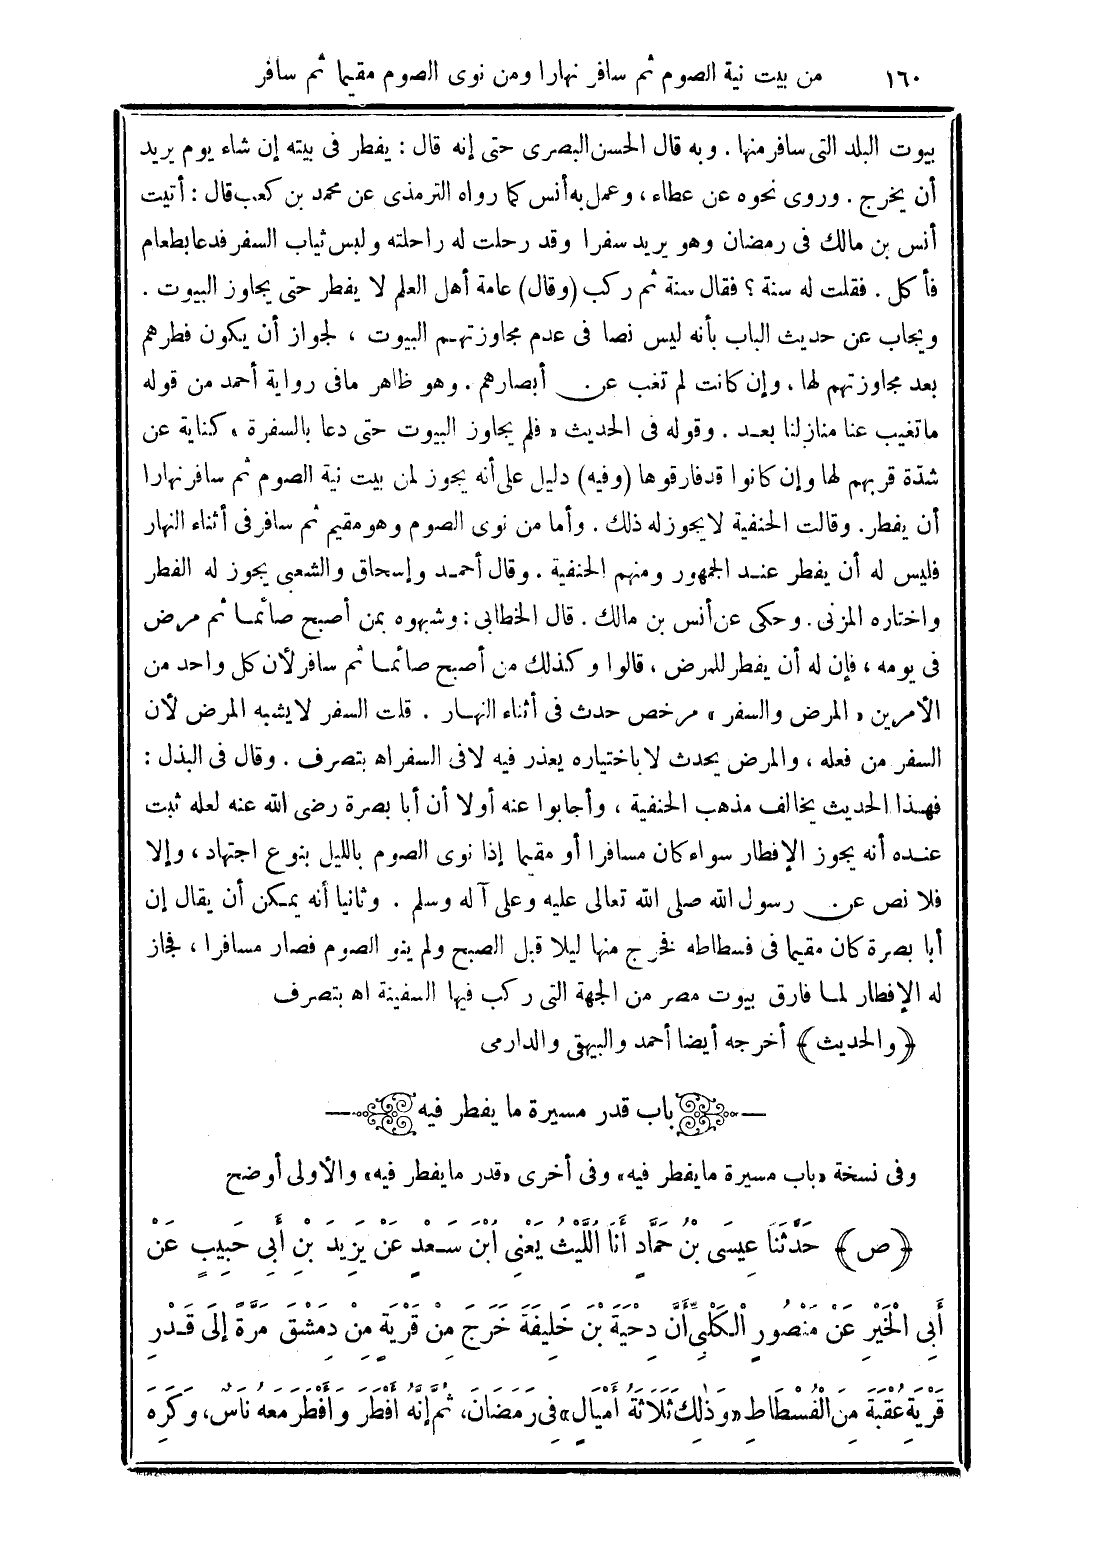 ١٦٠ من بيت نية الصوم ثم سافر نهارا ومن نوى الصوم مقيما ثم سافر
بيوت البلد التى سافر منها . وبه قال الحسن البصرى حتى إنه قال : يفطر فى بيته إن شاء يوم يريد
أن يخرج . وروى نحوه عن عطاء ، وعمل به أنس كما رواه الترمذى عن محمد بن كعب قال : أتيت
أنس بن مالك فى رمضان وهو يريد سفرا وقد رحلت له راحلته ولبس ثياب السفر فدعا بطعام
فأكل . فقلت له سنة ؟ فقال سنة ثم ركب (وقال) عامة أهل العلم لا يفطر حتى يجاوز البيوت .
ويجاب عن حديث الباب بأنه ليس نصا فى عدم مجاوزتهم البيوت ، لجواز أن يكون فطرهم
بعد مجاوزتهم لها ، وإن كانت لم تغب عن أبصارهم . وهو ظاهر مافى رواية أحمد من قوله
ماتغيب عنا منازلنا بعد . وقوله فى الحديث « فلم يجاوز البيوت حتى دعا بالسفرة » كناية عن
شدّة قربهم لها وإن كانوا قد فارقوها (وفيه) دليل على أنه يجوز لمن بيت نية الصوم ثم سافر نهارا
أن يفطر. وقالت الحنفية لا يجوز له ذلك . وأما من نوى الصوم وهو مقيم ثم سافر فى أثناء النهار
فليس له أن يفطر عند الجمهور ومنهم الحنفية . وقال أحمد وإسحاق والشعبى يجوز له الفطر
واختاره المزنى . وحكى عن أنس بن مالك . قال الخطابى : وشبهوه بمن أصبح صائما ثم مرض
فى يومه ، فإن له أن يفطر للمرض ، قالوا وكذلك من أصبح صائما ثم سافر لأن كل واحد من
الأمرين « المرض والسفر » مرخص حدث فى أثناء النهار . قلت السفر لا يشبه المرض لأن
السفر من فعله ، والمرض يحدث لا باختياره يعذر فيه لا فى السفر اه بتصرف . وقال فى البذل :
فهذا الحديث يخالف مذهب الحنفية ، وأجابوا عنه أولا أن أبا بصرة رضى الله عنه لعله ثبت
عنده أنه يجوز الإفطار سواء كان مسافرا أو مقيما إذا نوى الصوم بالليل بنوع اجتهاد ، وإلا
فلا نص عن رسول الله صلى الله تعالى عليه وعلى آله وسلم . وثانيا أنه يمكن أن يقال إن
أبا بصرة كان مقيما فى فسطاطه فخرج منها ليلا قبل الصبح ولم ينو الصوم فصار مسافرا ، فجاز
له الإفطار لما فارق بيوت مصر من الجهة التى ركب فيها السفينة اه بتصرف
﴿والحديث﴾ أخرجه أيضا أحمد والبيهقى والدارمى
باب قدر مسيرة ما يفطر فيه
وفى نسخة «باب مسيرة مايفطر فيه» وفى أخرى «قدر مايفطر فيه» والأولى أوضح
﴿ص﴾ حَدَّثَنَا عِيسَى بْنُ حَمَّادٍ أَنَا اللَّيْثُ يَعْنِى ابْنَ سَعْدٍ عَنْ يَزِيدَ بْنِ أَبِى حَبِيبٍ عَنْ
أَبِى الْخَيْرِ عَنْ مَنْصُورٍ الْكَلْبِىِّ أَنَّ دِحْيَةَ بْنَ خَلِيفَةَ خَرَجَ مِنْ قَرْيَةٍ مِنْ دِمَشْقَ مَرَّةً إِلَى قَدْرِ
قَرْيَةِ عُقْبَةَ مِنَ الْفُسْطَاطِ «وَذٰلِكَ ثَلَاثَةُ أَمْيَالٍ» فِى رَمَضَانَ، ثُمَّ إِنَّهُ أَفْطَرَ وَأَفْطَرَ مَعَهُ نَاسٌ، وَكَرِهَ